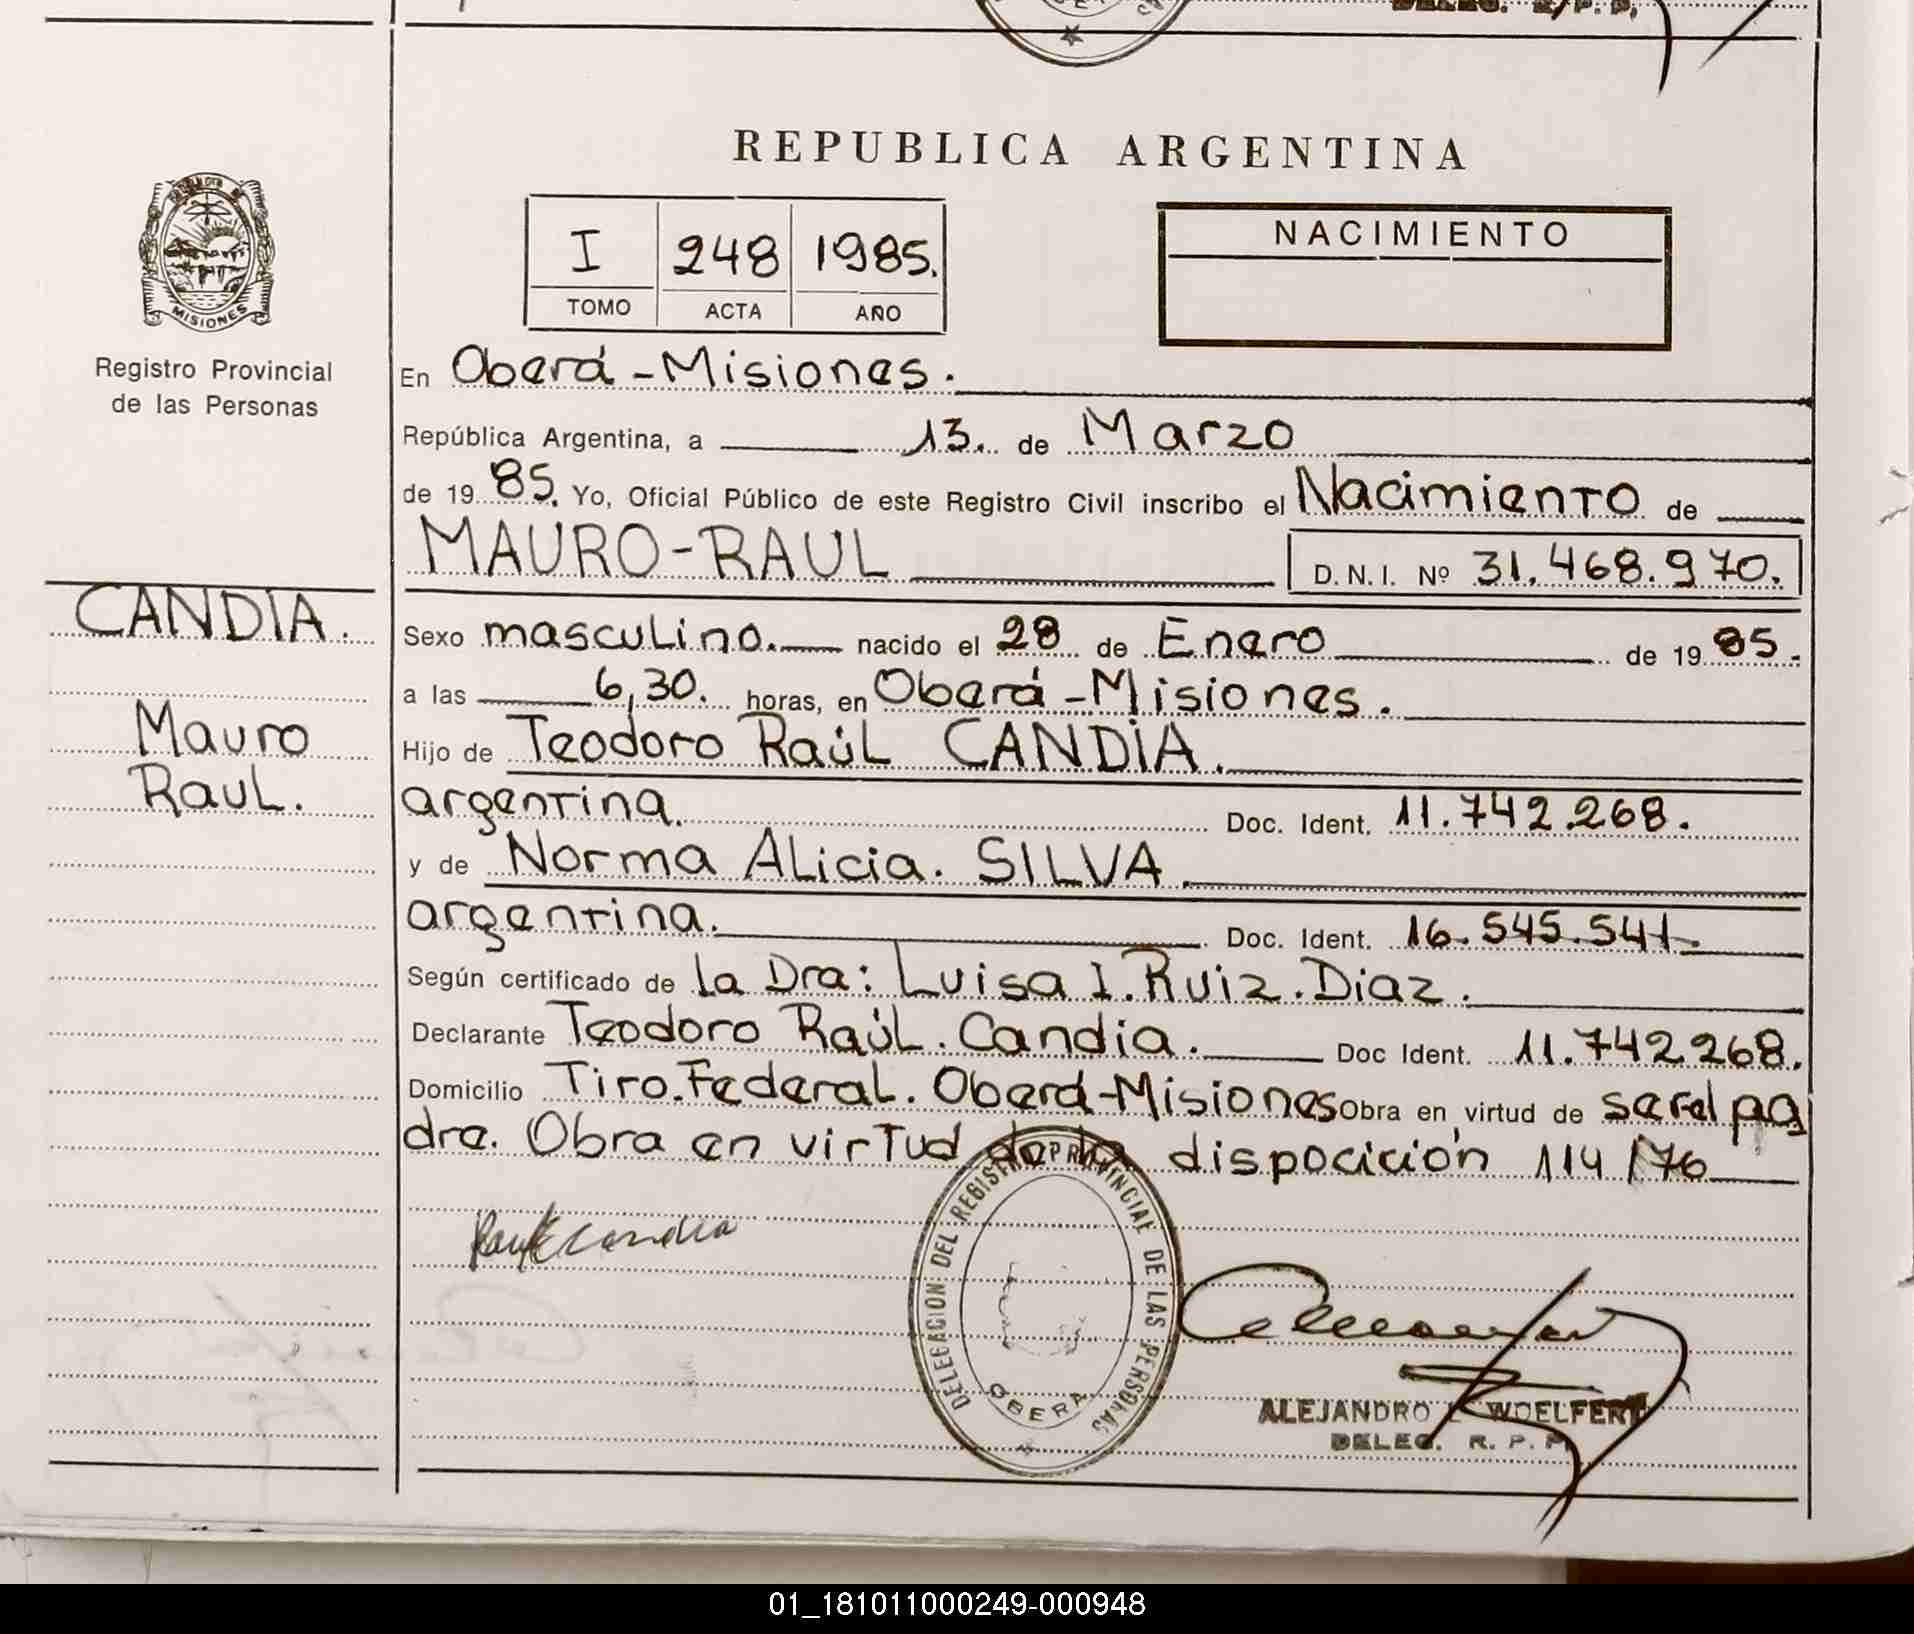 DELEG. R. P. P.
REPUBLICA ARGENTINA
MISIONES
Registro Provincial
de las Personas
I 248 1985.
TOMO ACTA AÑO
NACIMIENTO
En Oberá - Misiones.
República Argentina, a 13. de Marzo
de 19 85. Yo, Oficial Público de este Registro Civil inscribo el Nacimiento de
MAURO-RAUL D. N. I. Nº 31.468.970.
CANDIA.
Mauro
Raul.
Sexo masculino. nacido el 28 de Enero de 19 85.
a las 6,30. horas, en Oberá - Misiones.
Hijo de Teodoro Raúl CANDIA.
argentina. Doc. Ident. 11.742.268.
y de Norma Alicia. SILVA
argentina. Doc. Ident. 16.545.541.
Según certificado de la Dra: Luisa I. Ruiz. Diaz.
Declarante Teodoro Raúl. Candia. Doc Ident. 11.742268.
Domicilio Tiro.Federal. Oberá-Misiones Obra en virtud de ser el pa
dre. Obra en virtud de la disposición 114/76
Raul Candia
DELEGACION DEL REGISTRO PROVINCIAL DE LAS PERSONAS
OBERA
ALEJANDRO L. WOELFERT
DELEG. R. P. P.
01_181011000249-000948